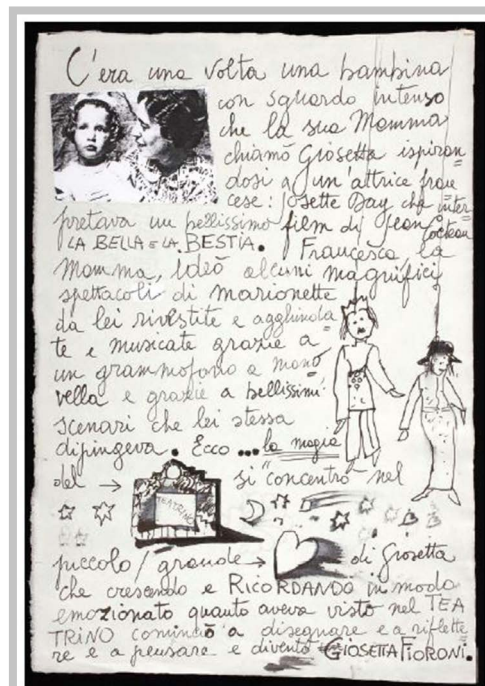 C'era una volta una bambina
con sguardo intenso
che la sua Mamma
chiamò Giosetta ispiran=
dosi a un'attrice fran=
cese: Josette Day che inter=
pretava un bellissimo film di Jean Cocteau
LA BELLA E LA BESTIA. Francesca, la
Mamma, ideò alcuni magnifici
spettacoli di marionette
da lei rivestite e agghinda
te e musicate grazie a=
un grammofono a mano=
vella e grazie a bellissimi
scenari che lei stessa
dipingeva. Ecco ... la magia
del → TEATRINO si "concentrò nel
piccolo / grande → di Giosetta
che crescendo e RICORDANDO in modo
emozionato quanto aveva visto nel TEA
TRINO cominciò a disegnare e a riflette
re e a pensare e diventò GIOSETTA FIORONI.